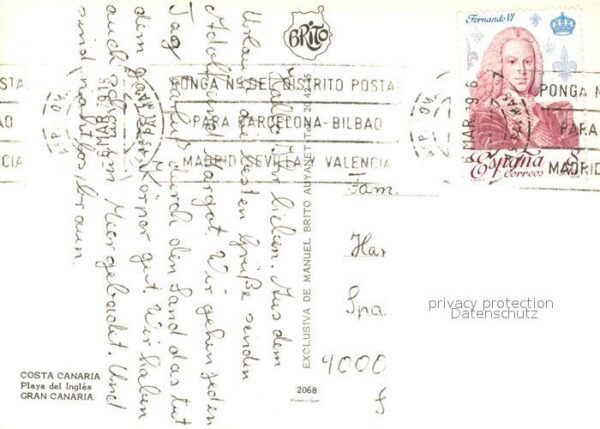 Hallo Ihr lieben. Aus dem
Urlaub die besten Grüße senden
Adolf und Margot. Wir gehen jeden
Tag durch den Land das tut
dem ganzen Körper gut. Wir haben
auch im Meer gebadet. Und
sind nahtlos braun.
COSTA CANARIA
Playa del Inglés
GRAN CANARIA
BRITO
EXCLUSIVA DE MANUEL BRITO AUYANET
2068
PONGA Nº DEL DISTRITO POSTAL
PARA BARCELONA-BILBAO
MADRID SEVILLA Y VALENCIA
6 MAR 1979
6 MAR 1979
PONGA N
PARA
MADRID
Fernando VI
España
Correos
Fam.
Han
Spa.
4000
privacy protection
Datenschutz